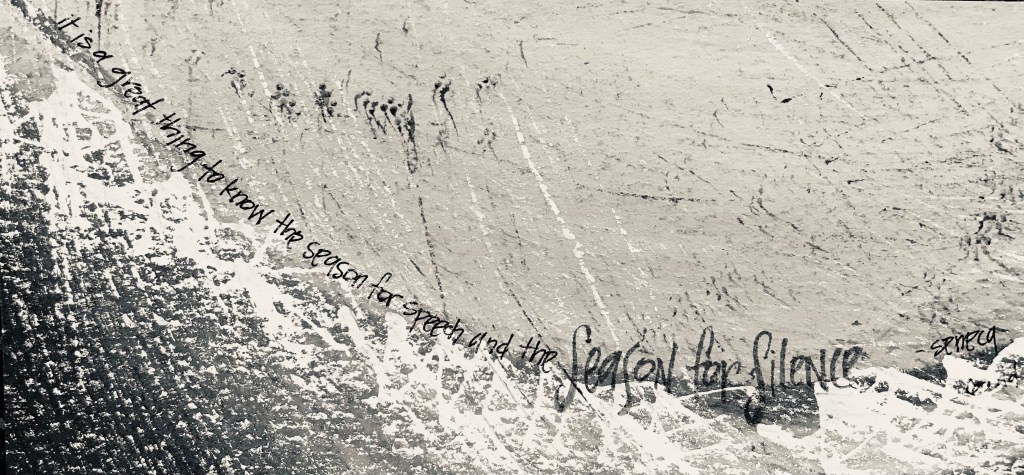 it is a great thing to know the season for speech and the season for silence
- seneca